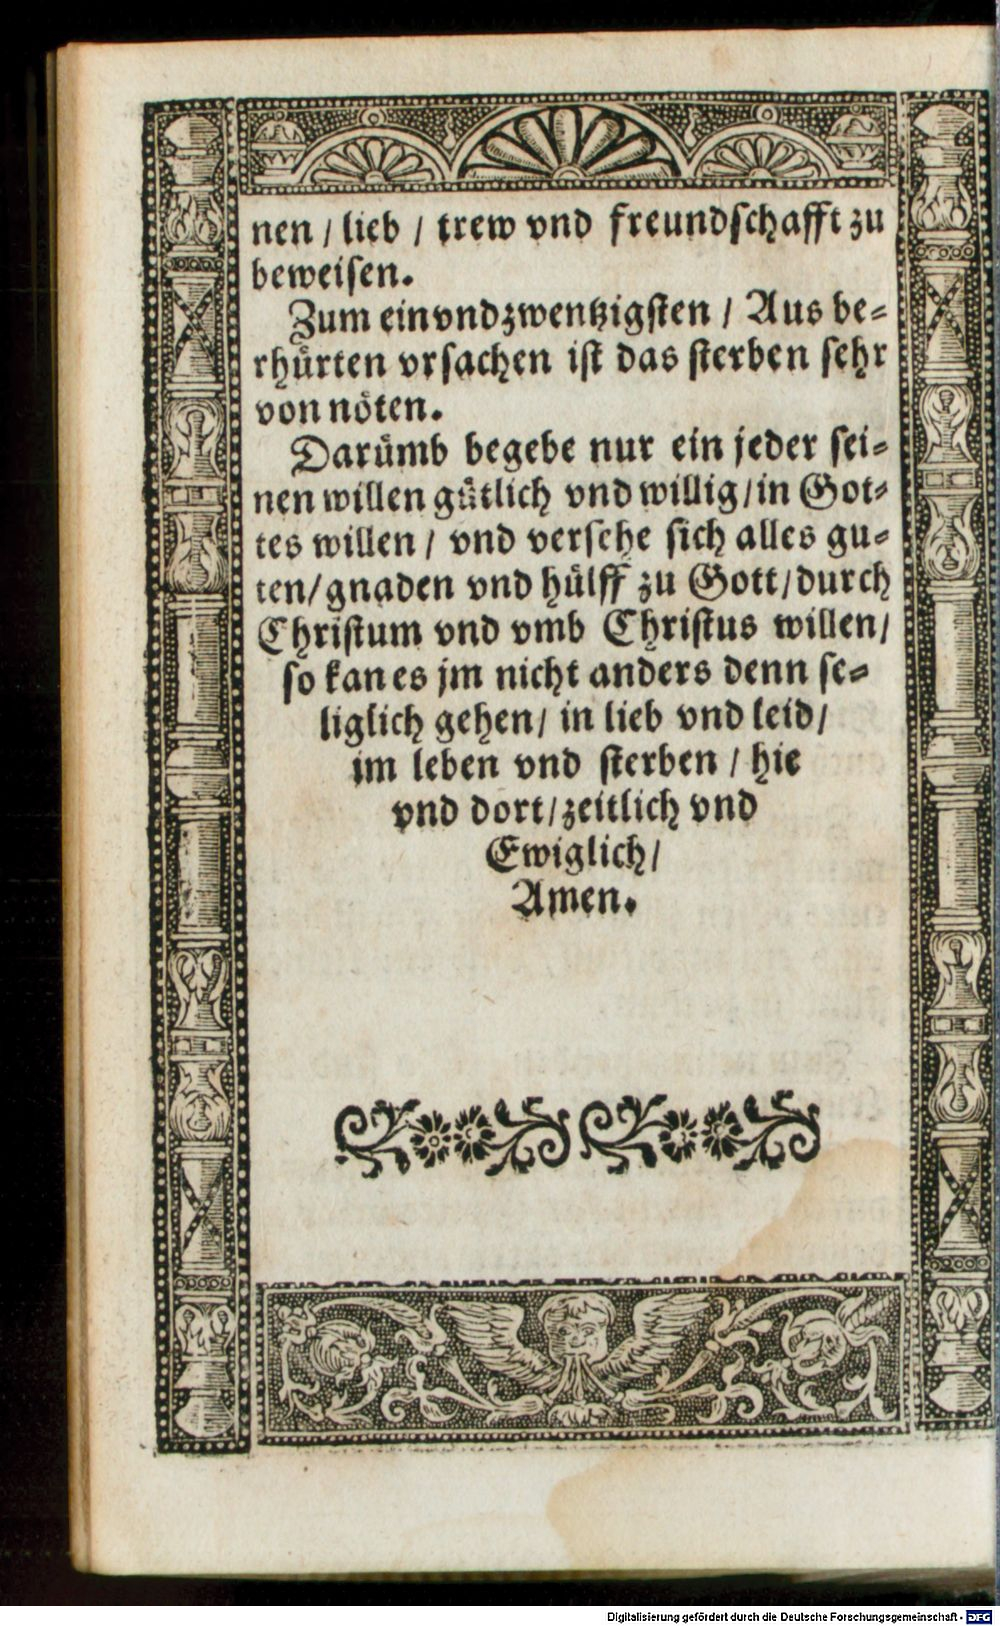 nen / lieb / trew vnd freundſchafft zu
beweiſen.
Zum einvndzwentzigſten / Aus be-
rhuͤrten vrſachen iſt das ſterben ſehr
von noͤten.
Daruͤmb begebe nur ein jeder ſei-
nen willen guͤtlich vnd willig / in Got-
tes willen / vnd verſehe ſich alles gu-
ten / gnaden vnd huͤlff zu Gott / durch
Chriſtum vnd vmb Chriſtus willen /
ſo kan es jm nicht anders denn ſe-
liglich gehen / in lieb vnd leid /
im leben vnd ſterben / hie
vnd dort / zeitlich vnd
Ewiglich /
Amen.
Digitalisierung gefördert durch die Deutsche Forschungsgemeinschaft - DFG